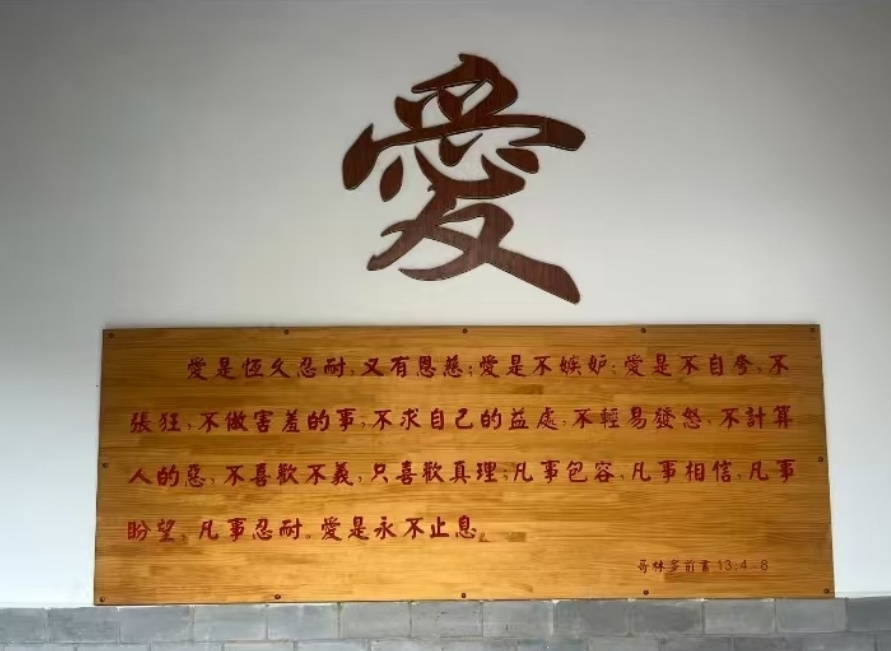 愛
愛是恆久忍耐,又有恩慈;愛是不嫉妒;愛是不自夸,不
張狂,不做害羞的事,不求自己的益處,不輕易發怒,不計算
人的惡,不喜歡不義,只喜歡真理;凡事包容,凡事相信,凡事
盼望,凡事忍耐。愛是永不止息。
哥林多前書 13:4-8